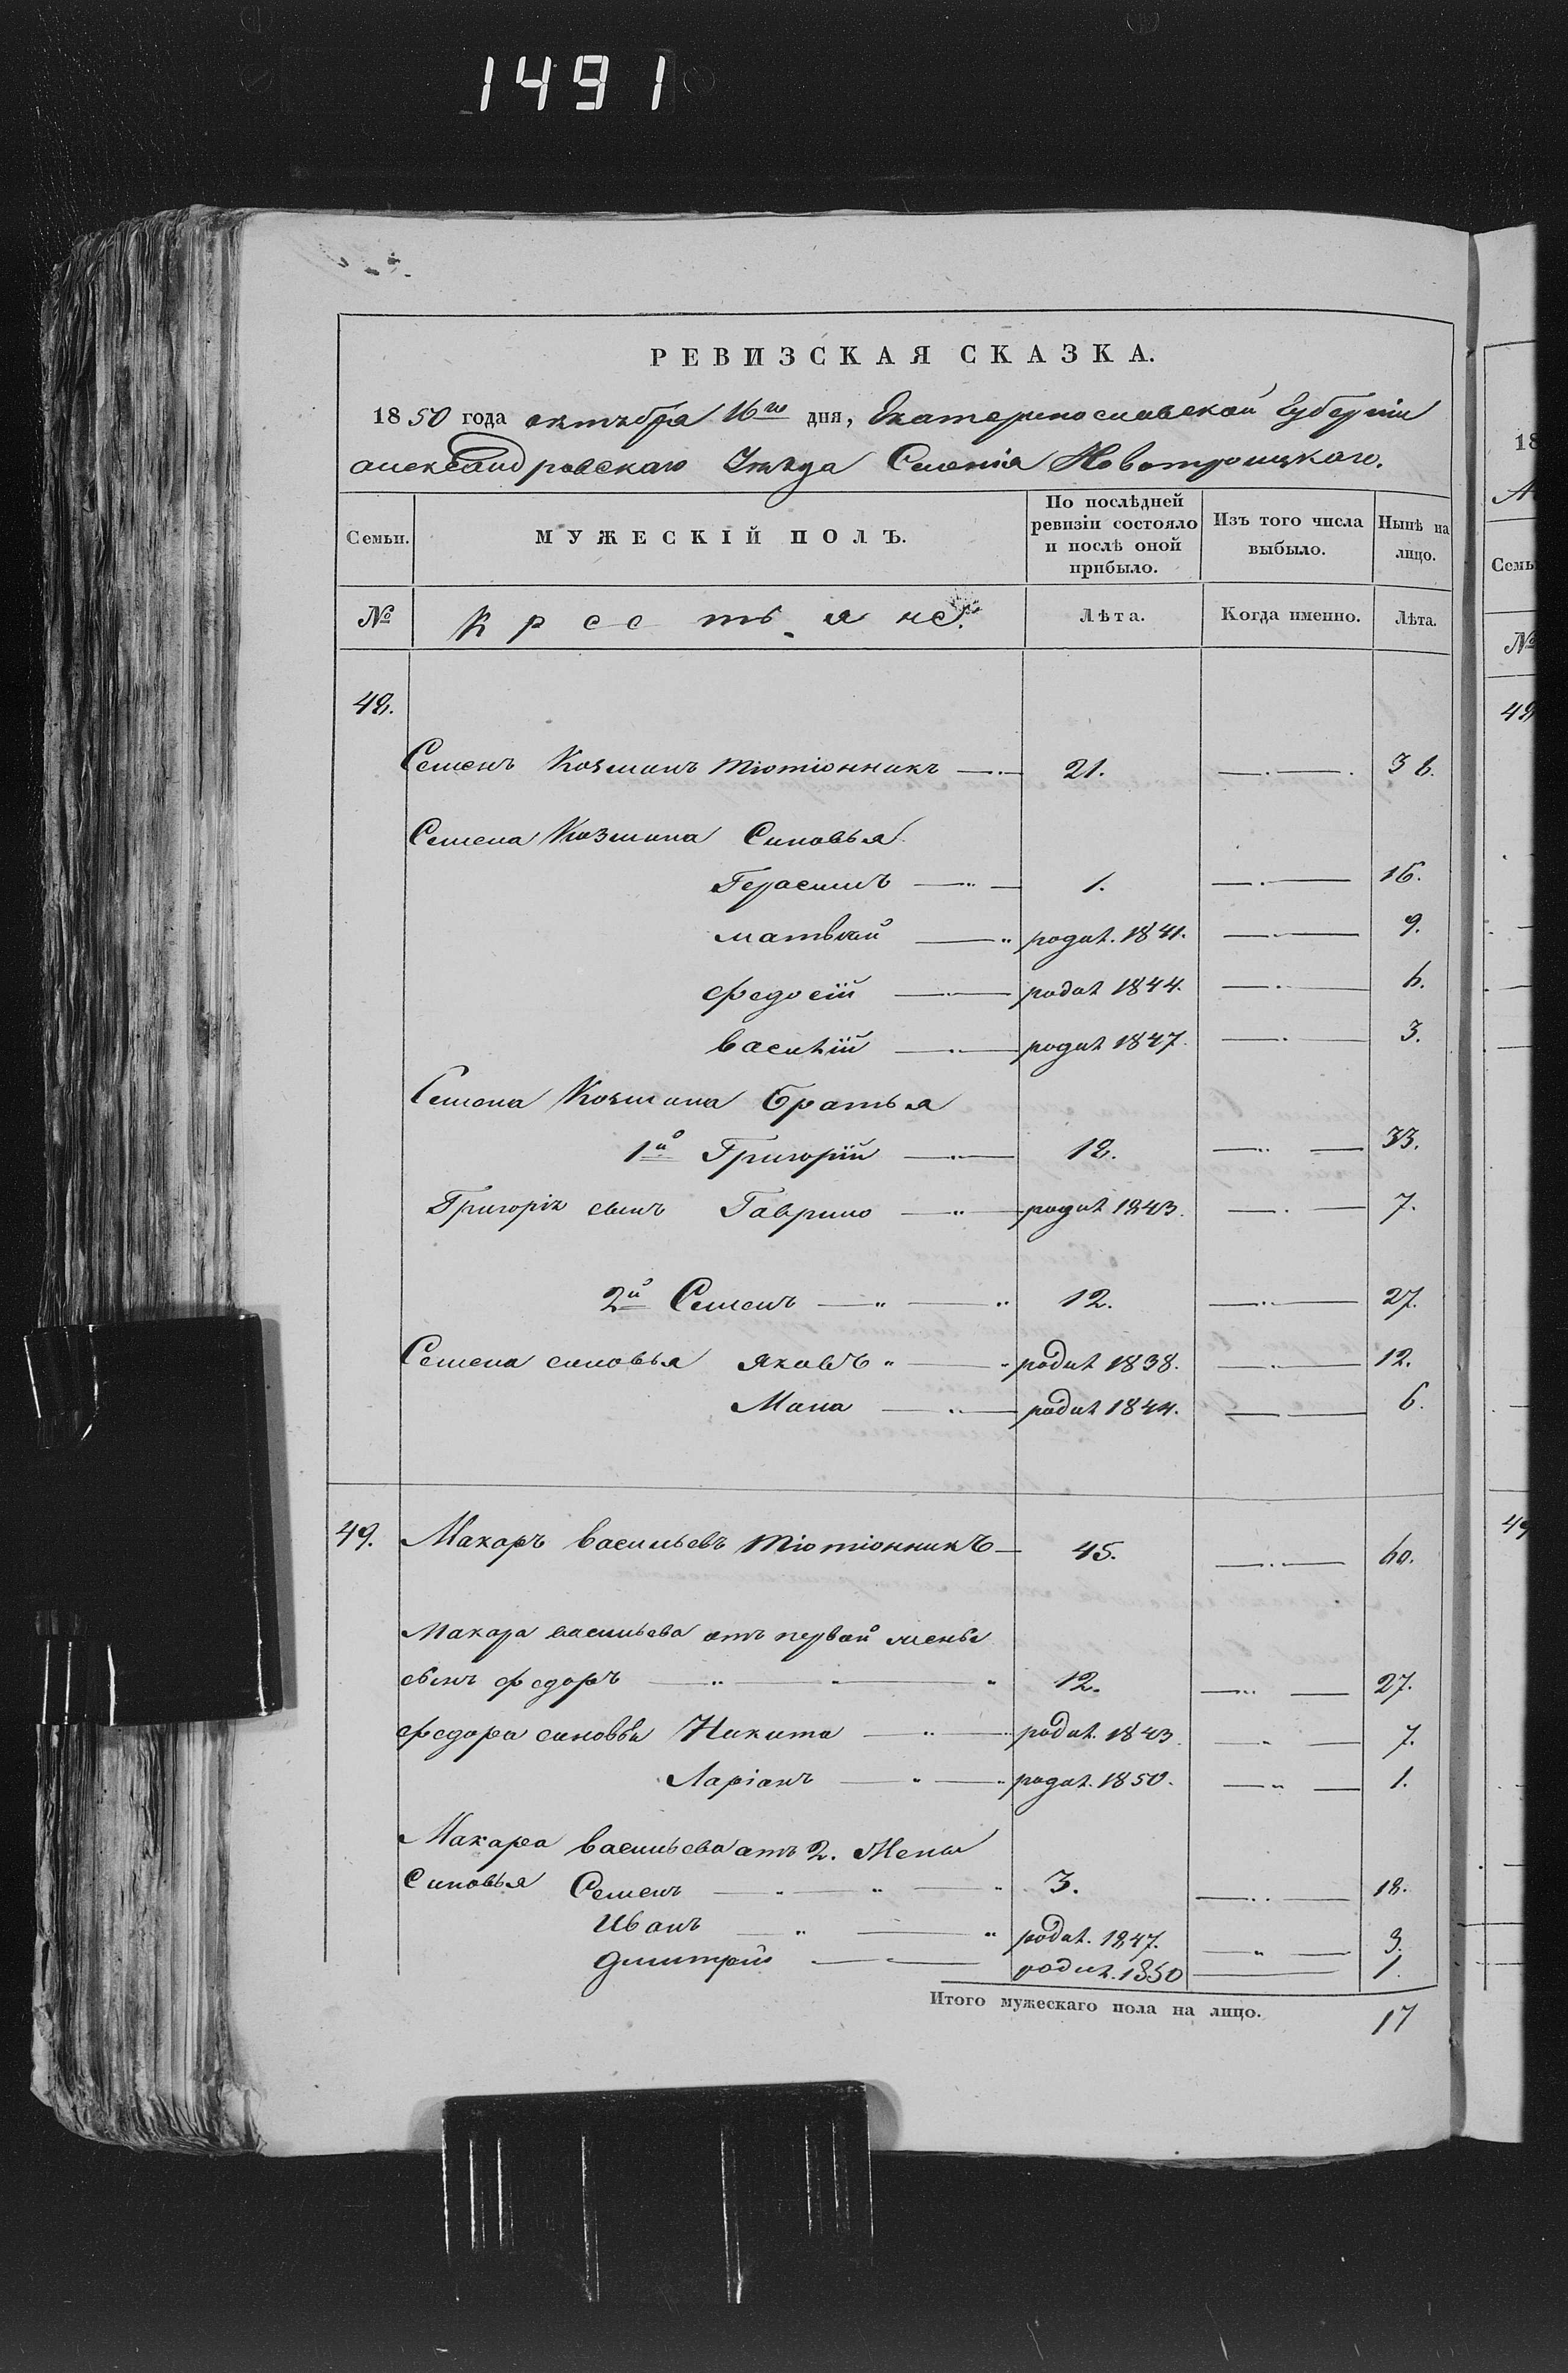 1491
РЕВИЗСКАЯ СКАЗКА.
1850 года октября 16го дня, Екатеринославской Губерніи
александровскаго Уѣзда Селенія Новотроицкаго.
Семьи. МУЖЕСКІЙ ПОЛЪ. По послѣдней ревизіи состояло и послѣ оной прибыло. Изъ того числа выбыло. Нынѣ на лицо.
№ Крестьяне. Лѣта. Когда именно. Лѣта.
48.
Семенъ Козминъ Тютюнникъ 21. 36.
Семена Козмина Синовья
Герасимъ 1. 16.
матвѣй родил. 1841. 9.
федосій родил 1844. 6.
василій родил 1847. 3.
Семена Козмина Братья
1й Григорій 18. 33.
Григорія сынъ Гаврило родил 1843. 7.
2й Семенъ 12. 27.
Семена синовья яковъ родил 1838. 12.
родил 1844. 6.
49. Макаръ васильевъ Тютюнникъ 45. 60.
Макара васильева отъ первой жены
сынъ федоръ 12. 27.
федора синовья Никита родил. 1843. 7.
Ларіонъ родил. 1850. 1.
Макара васильева отъ 2. Жены
Синовья Семенъ 3. 18.
Иванъ родил. 1847. 3.
дмитрій родил. 1850 1.
Итого мужескаго пола на лицо. 17
18
Семь
№
48
49